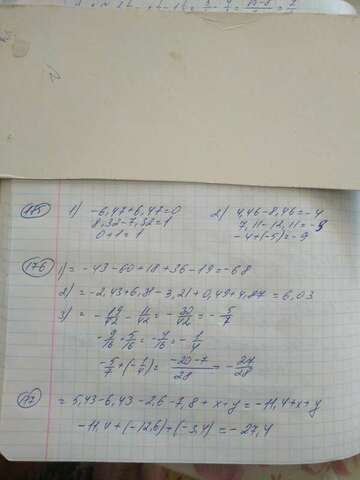 175 1) -6,47+6,47=0 2) 4,46-8,46=-4
8,32-7,32=1 7,11-12,11=-5
0+1=1 -4+(-5)=-9
176 1) = -43-60+18+36-19=-68
2) = -2,43+6,31-3,21+0,49+4,87=6,03
3) = -19/42 - 11/42 = -30/42 = -5/7
-9/16+5/16=-4/16=-1/4
-5/7+(-1/4)= -20-7/28 = -27/28
177 = 5,43-6,43-2,6-7,8+x+y=-11,4+x+y
-11,4+(-12,6)+(-3,4)=-27,4